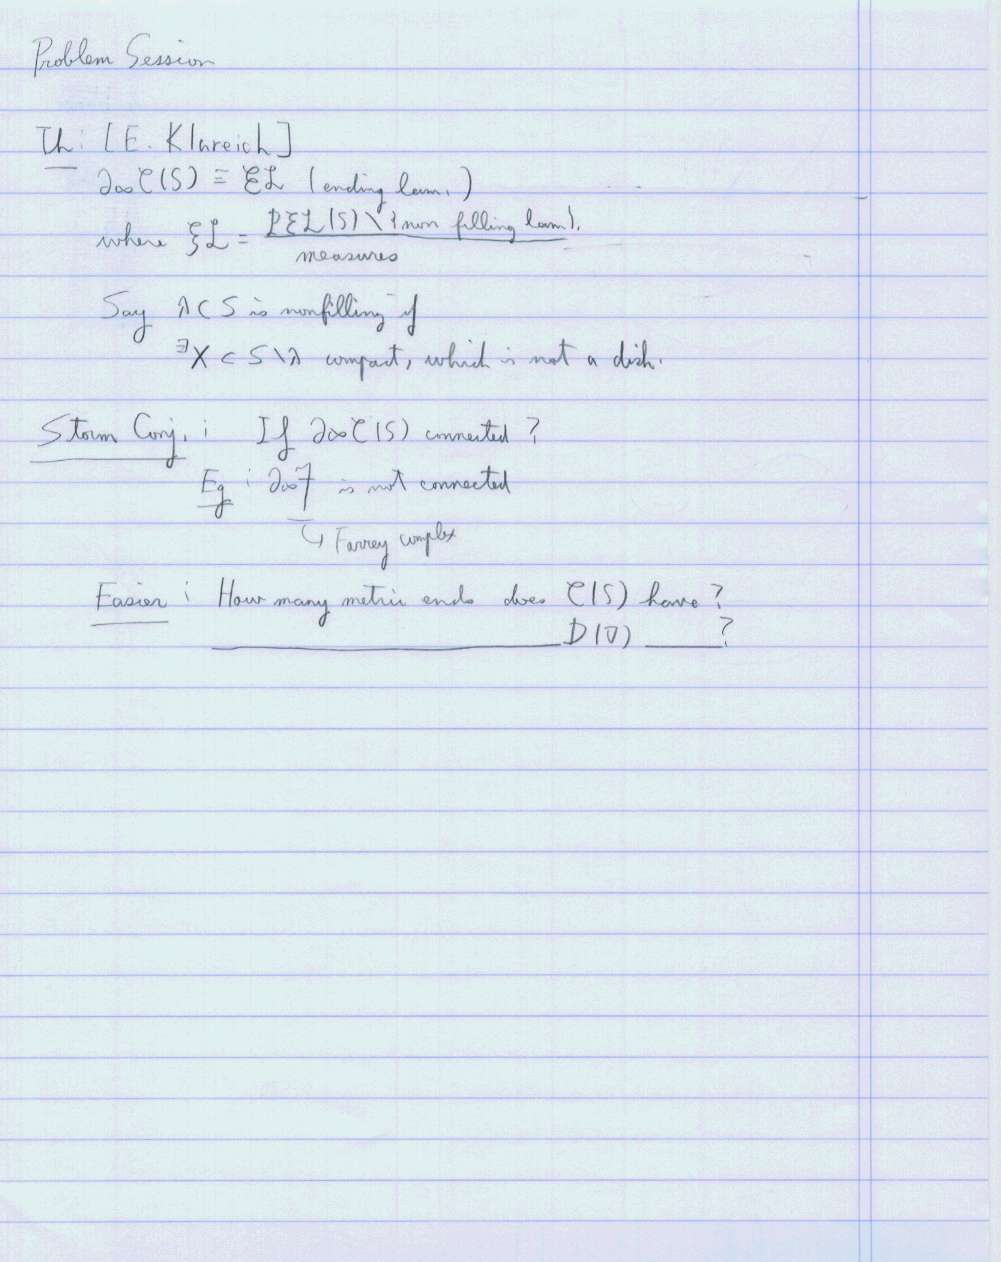 Problem Session
Th: [E. Klareich]
∂∞C(S) ≡ EL (ending lam.)
where EL = PEL(S) \ {non filling lam}.
measures
Say λ ⊂ S is nonfilling if
∃X ⊂ S\λ compact, which is not a disk.
Storm Conj. : If ∂∞C(S) connected ?
Eg : ∂∞F is not connected
↳ Farrey complex
Easier : How many metric ends does C(S) have ?
D(V) ?